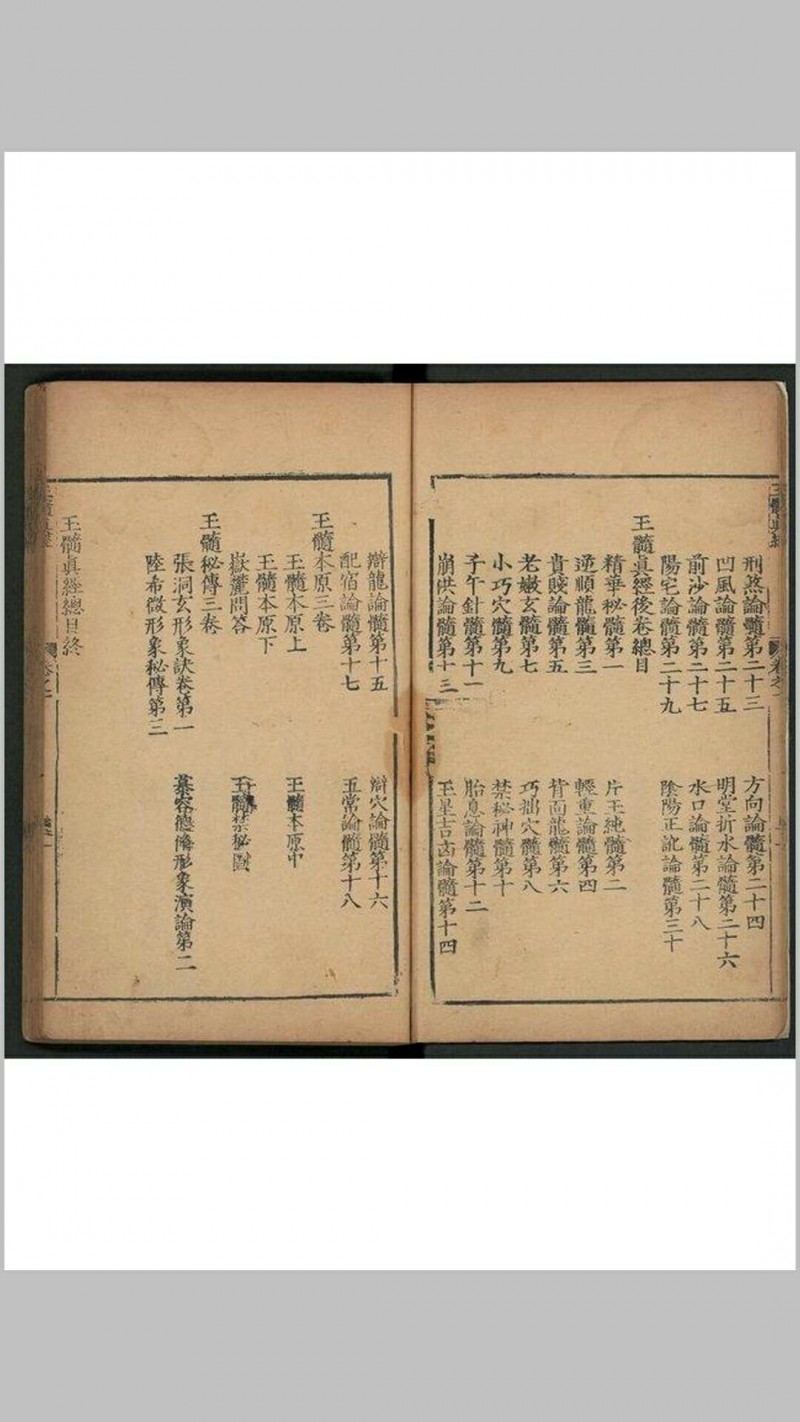 刑煞論髓第二十三　方向論髓第二十四
凹風論髓第二十五　明堂折水論髓第二十六
前沙論髓第二十七　水口論髓第二十八
陽宅論髓第二十九　陰陽正訛論髓第三十
玉髓眞經後卷總目
精華秘髓第一　片玉純髓第二
逆順龍髓第三　輕重論髓第四
貴賤論髓第五　背面龍髓第六
老嫩玄髓第七　巧拙穴髓第八
小巧穴髓第九　禁秘神髓第十
子午針髓第十一　胎息論髓第十二
崩洪論髓第十三　五星吉凶論髓第十四
辯龍論髓第十五　辯穴論髓第十六
配宿論髓第十七　五常論髓第十八
玉髓本原三卷
玉髓本原上　玉髓本原中
玉髓本原下
嶽麓問答　玉髓禁秘圖
玉髓秘傳三卷
張洞玄形象訣卷第一　慕容德儁形象演論第二
陸希微形象秘傳第三
玉髓眞經總目終